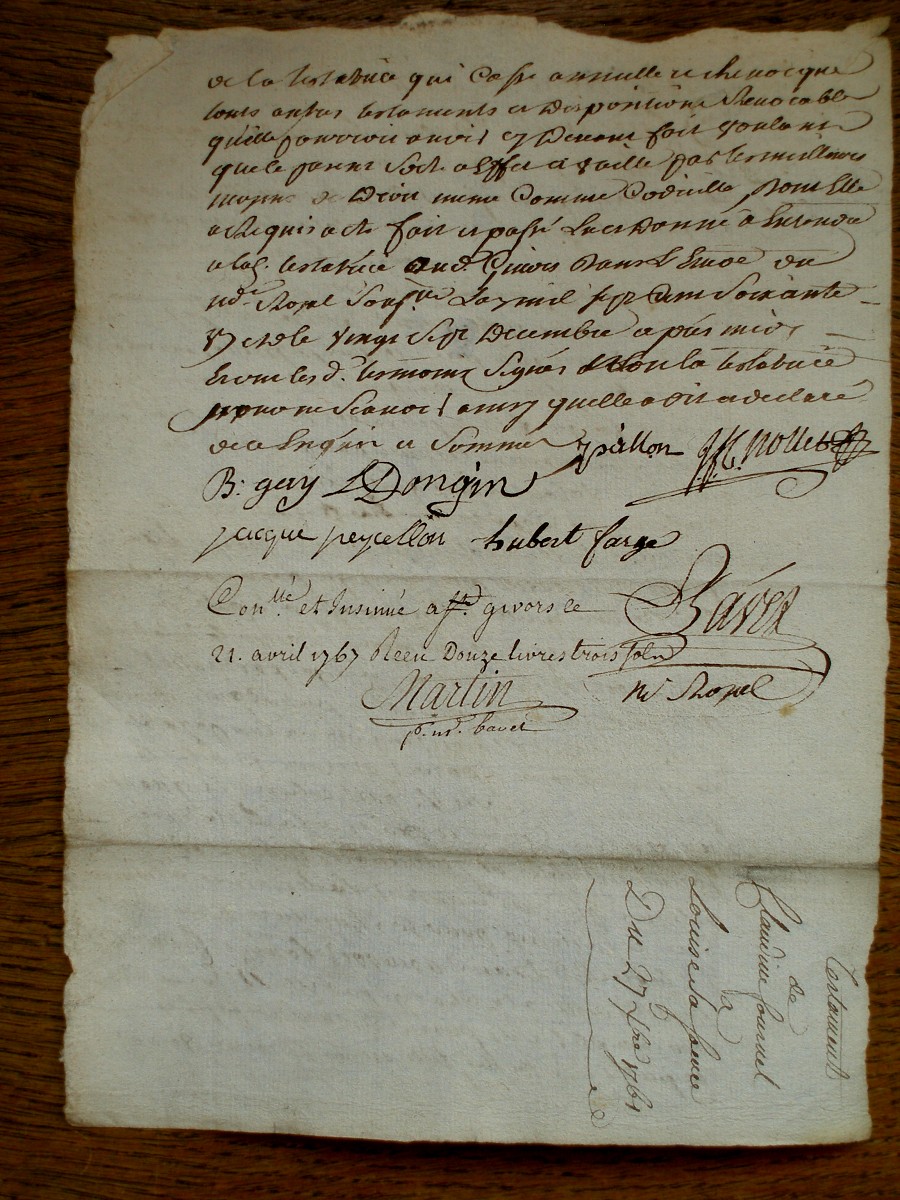 de la testatrice qui casse annulle et revocque
touts autres testaments et dispositions revocable
qu'elle pourroit avoir cy devant fait voulant
que le present sorte a Effet et vaille par les meilleurs
moyens de droit meme comme codicille dont Elle
a requis acte fait et passé lu et donné à Entendre
a lad. testatrice aud. Givors dans l'Etude du
nd.re Royal sousné Lan mil sept cent soixante
un et le vingt sept Decembre apres midi
Et ont les d. temoins signés et non la testatrice
pour ne scavoir ainsy quelle a dit et declaré
de ce Enquise et sommée
B. gay Dongin
jacque peycellon hubert farge
Con.llé et Insinué a givors le
21. avril 1767 Reçu Douze livres trois sols
Martin
Bavet
n.re Royal
p. m.r bavet
Testament
de
Claudine fournel
a
Louise sa soeur
Du 27 Xbre 1761